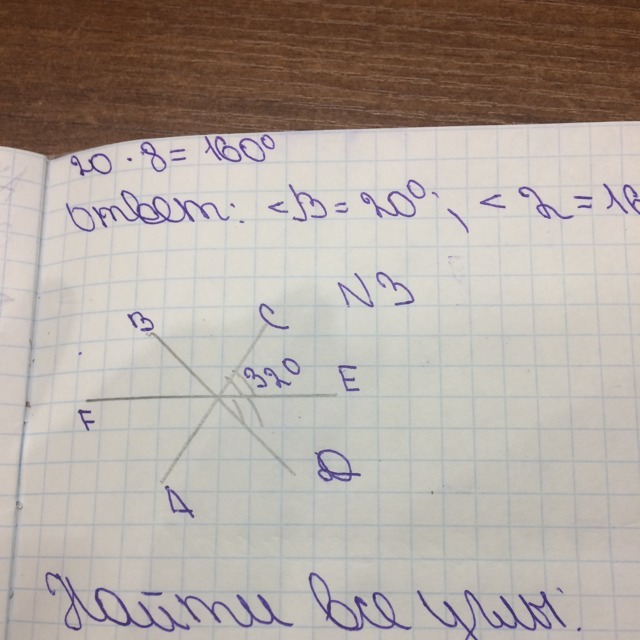 20 · 8 = 160°
Ответ: <B = 20°; < 2 = 16
N3
B
C
32°
E
F
A
D
Найти все углы.